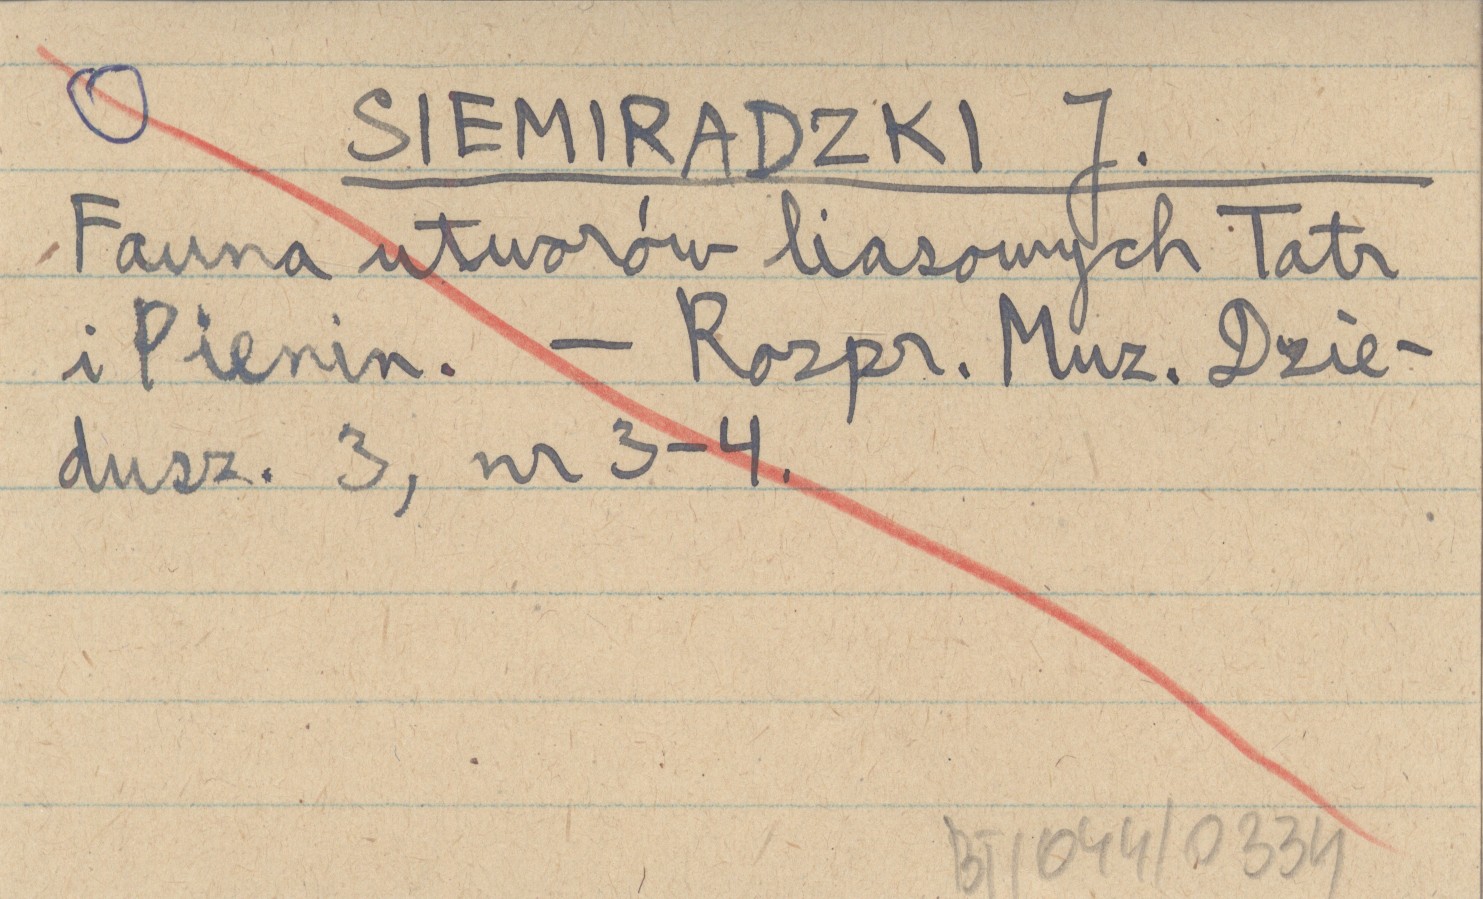 SIEMIRADZKI J.
Fauna utworów liasowych Tatr
i Pienin. — Rozpr. Muz. Dzie-
dusz. 3, nr 3-4.
BT/044/0334